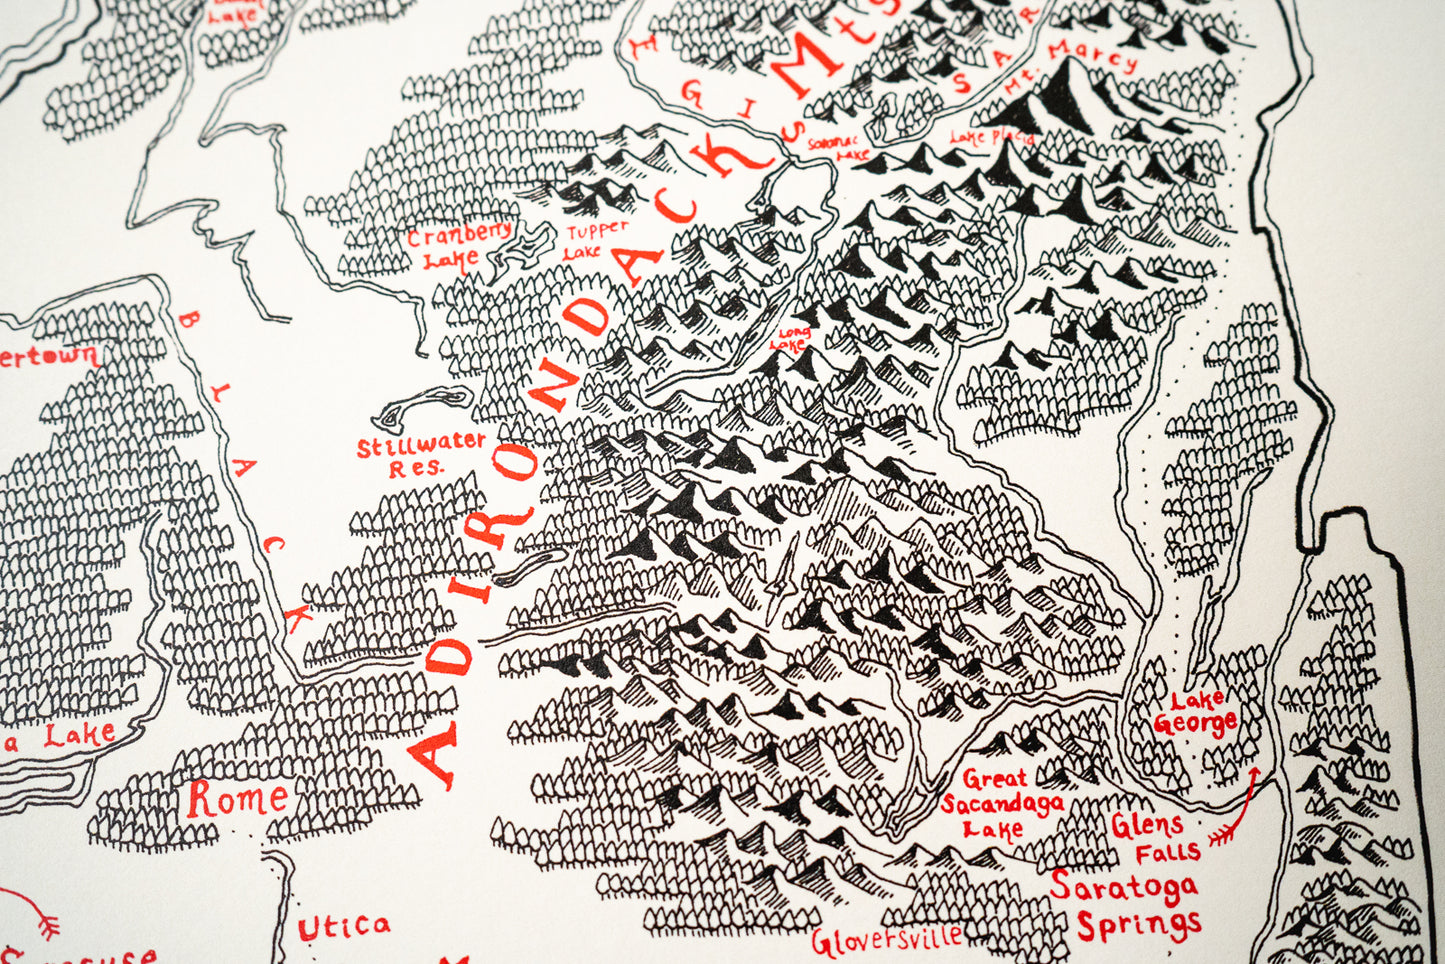 Lake
E G I S
Mtg
S A R
Mt. Marcy
Saranac
Lake
Lake Placid
Cranberry
Lake
Tupper
Lake
ADIRONDACK
Long
Lake
BLACK
ertown
Stillwater
Res.
a Lake
Rome
Lake
George
Great
Sacandaga
Lake
Glens
Falls
Saratoga
Springs
Utica
Gloversville